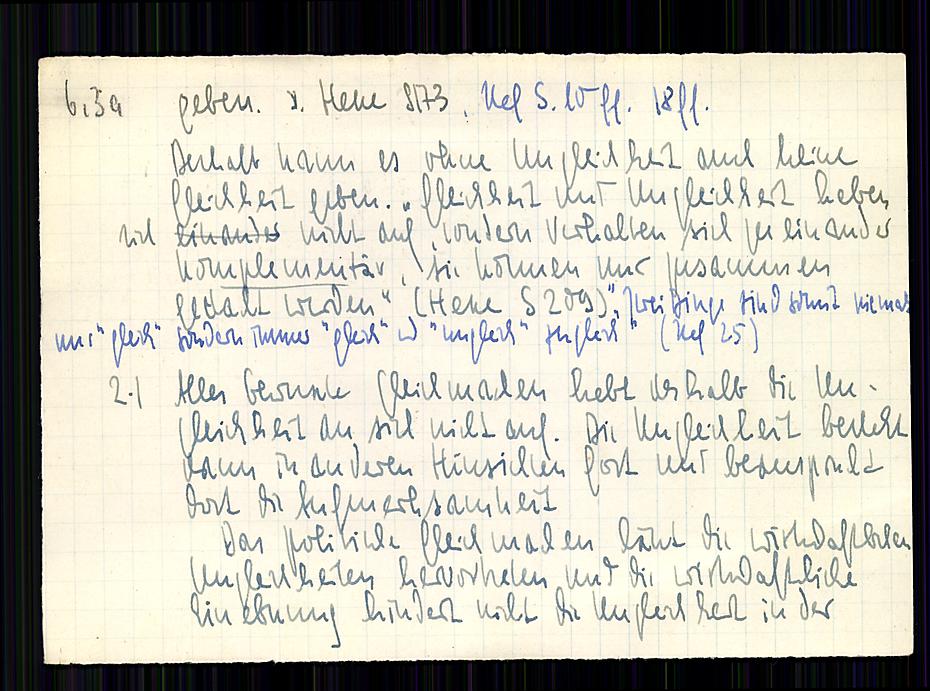 6,3a geben. s. Hene S 173, Nef S. 10 ff. 18 ff.
Deshalb kann es ohne Ungleichheit auch keine
Gleichheit geben. „Gleichheit und Ungleichheit heben
sich einander nicht auf, sondern verhalten sich zueinander
komplementär, sie können nur zusammen
gedacht werden" (Hene S 209)," zwei Dinge sind somit niemals
nur "gleich" sondern immer "gleich" u "ungleich" zugleich" (Nef 25)
2.1 Alles bewusste Gleichmachen hebt deshalb die Un-
gleichheit an sich nicht auf. Die Ungleichheit besteht
dann in anderen Hinsichten fort und beansprucht
dort die Aufmerksamkeit
Das politische Gleichmachen läßt die wirtschaftlichen
Ungleichheiten hervortreten und die wirtschaftliche
Einebnung hindert nicht die Ungleichheit in der